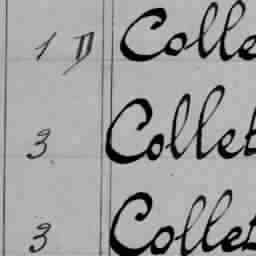 1 D Colle
3 Collet
3 Collet